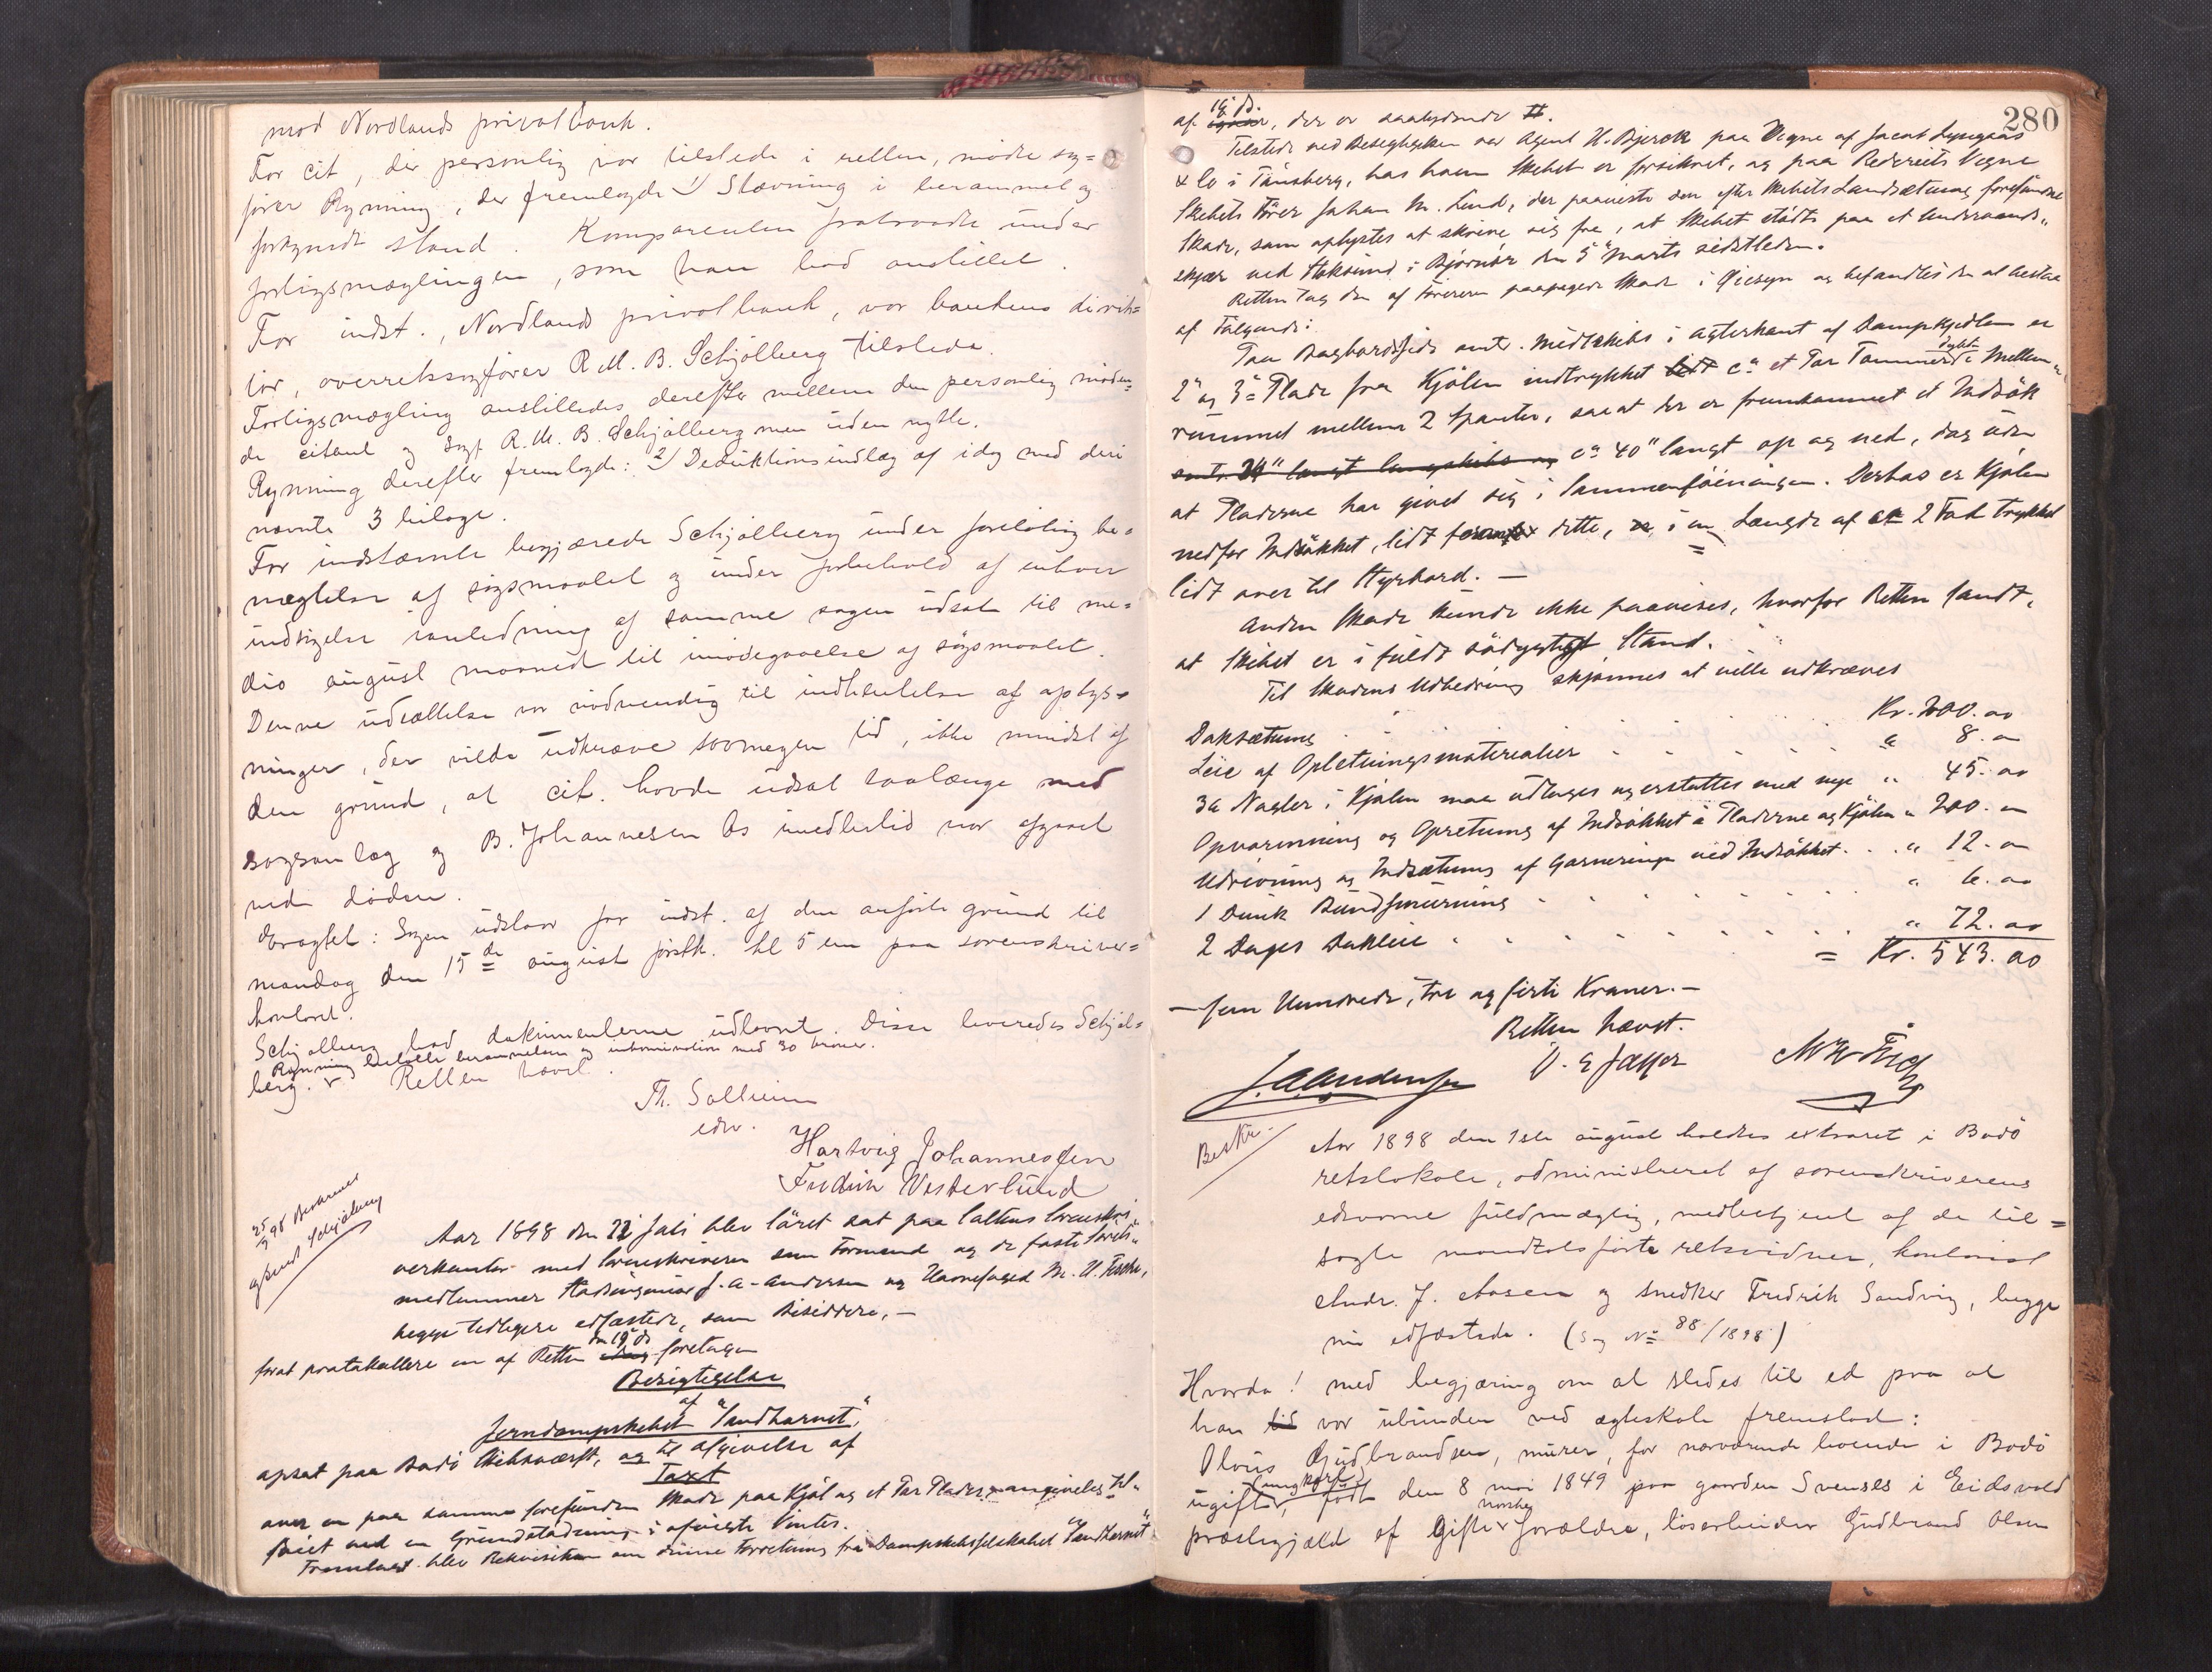 mod Nordlands privatbank.
For cit, der personlig var tilstede i retten, mødte sag=
fører Rynning, der fremlagde 1) Stævning i berammet og
forkyndt stand. Komparenten fratraadte under
forligsmæglingen, som han bad anstillet.
For indst., Nordlands privatbank, var bankens direk=
tør, overretssagfører R. M. B. Schjølberg tilstede.
Forligsmægling anstilledes derefter mellem den personlig møden=
de citant og sagf R. M. B. Schjølberg men uden nytte.
Rynning derefter fremlagde: 2) Deduktionsindlæg af idag med deri
nævnte 3 bilage.
For indstævnte begjærede Schjølberg under foreløbig be=
nægtelse af søgsmaalet og under forbehold af enhver
indsigelse i anledning af samme sagen udsat til me=
dio august maaned til imødegaaelse af søgsmaalet.
Denne udsættelse var nødvendig til indhentelse af oplys=
ninger, der vilde udkræve saamegen tid, ikke mindst af
den grund, at cit. havde udsat saalænge med
søgsanlæg og B. Johannesen Os imedlertid var afgaaet
ved døden.
Eragtet: Sagen udstaar for indst. af den anførte grund til
mandag den 15de august førstk. kl 5 em paa sorenskriver=
kontoret.
Schjølberg bad dokumenterne udlaant. Disse leveredes Schjøl=
Rynning betalte berammelsen og inkamination med 30 kroner.
berg. Retten hævet.
Th. Solheim
edsv.
Hartvig Johannesen
Fredrik Vesterlund
25/7 98 Beskrevet
Aar 1898 den 22 Juli blev søret sat paa Saltens Sorenskri„
verkontor med Sorenskriveren som Formand og de faste Sørets„
medlemmer Stadsingeniør J. A. Andersen og Havnefoged M. U. Fische,
begge tidligere edfæstede, som Bisiddere, —
forat protokollere en af Retten den 19 ds foretagen
Besigtigelse
af
Jerndampskibet "Sandhornet",
opsat paa Bodø Skibsværft, og til Afgivelse af
Taxt
over en paa samme forefunden Skade paa Kjøl og et Par Plader, angivelig til„
føiet ved en Grundstødning i afvigte Vinter.
Fremlagt blev Rekvisition om denne Forretning fra Dampskibsselskabet "Sandhornet"
280
af 19 ds., der er saalydende II.
Tilstede ved Besigtigelsen var Agent H. Bjerck paa Vegne af Jacob Lysegaas
& Co i Tønsberg, hos hvem Skibet er forsikret, og paa Rederiets Vegne
Skibets Fører Johan M. Lund, der paaviste den efter Skibets Landsætning forefundne
Skade, som oplystes at skrive sig fra, at Skibet stødte paa et Undervands„
skjær ved Stoksund i Bjørnør den 5 Marts sidstleden.
Retten tog den af Føreren paapegede Skade i Øiesyn og befandtes den at bestaa
af Følgende:
Paa Bagbordsside omtr. midtskibs i Agterkant af Dampkjedlen er
2' og 3' Plade fra Kjølen indtrykket ca et Par Tommer dybt i Mellem„
rummet mellem 2 Spanter, saa at der er fremkommet et Indsøk
omtr. 24" langt langskibs og ca 40" langt op og ned, dog uden
at Pladerne har givet sig i Sammenføiningen. Derhos er Kjølen
nedfor Indsøkket, lidt foranfor dette, i en Længde af 2 Fod trykket
lidt over til Styrbord. —
Anden Skade kunde ikke paavises, hvorfor Retten fandt,
at Skibet er i fuldt sødygtigt Stand.
Til Skadens Udbedring skjønnes at ville udkræves
Doksætning . . . . . Kr. 200. oo
Leie af Opletningsmaterialier . . . . . " 8. oo
30 Nagler i Kjølen maa udtages og erstattes med nye " 45. oo
Opvarmning og Opretning af Indsøkket i Pladerne og Kjølen " 200. oo
Udrivning og Indsætning af Garneringen ved Indsøkket . . " 12. oo
1 Dunk Bundsmurning . . . . . " 6. oo
2 Dages Dokleie . . . . . " 72. oo
= Kr. 543. oo
— fem Hundrede, tre og firti Kroner. —
Retten hævet.
J. A. Andersen
Beskr.
Aar 1898 den 1ste august holdtes extraret i Bodø
retslokale, administreret af sorenskriverens
edsvorne fuldmægtig, medbetjent af de til=
sagte mandtalsførte retsvidner, kontorist
Andr. J. Aasen og snedker Fredrik Sandvig, begge
nu edfæstede. (Sag No 88/1898)
Hvorda! med begjæring om at stedes til ed paa at
han var ubunden ved ægteskab fremstod:
Olaus Gudbrandsen, murer, for nærværende boende i Bodø
ugift ungkarl, født den 8 mai 1849 paa gaarden Svenses i Eidsvold
præstegjæld af gifte norske forældre, løsarbeider Gudbrand Olsen